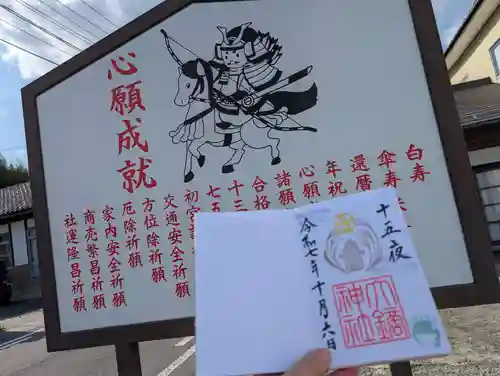 心願成就
白寿
傘寿
還暦
年祝
心願
諸願
合格
十三
七五
初宮
交通安全祈願
方位除祈願
厄除祈願
家内安全祈願
商売繁昌祈願
社運隆昌祈願
十五夜
令和七年十月六日
大鏑神社